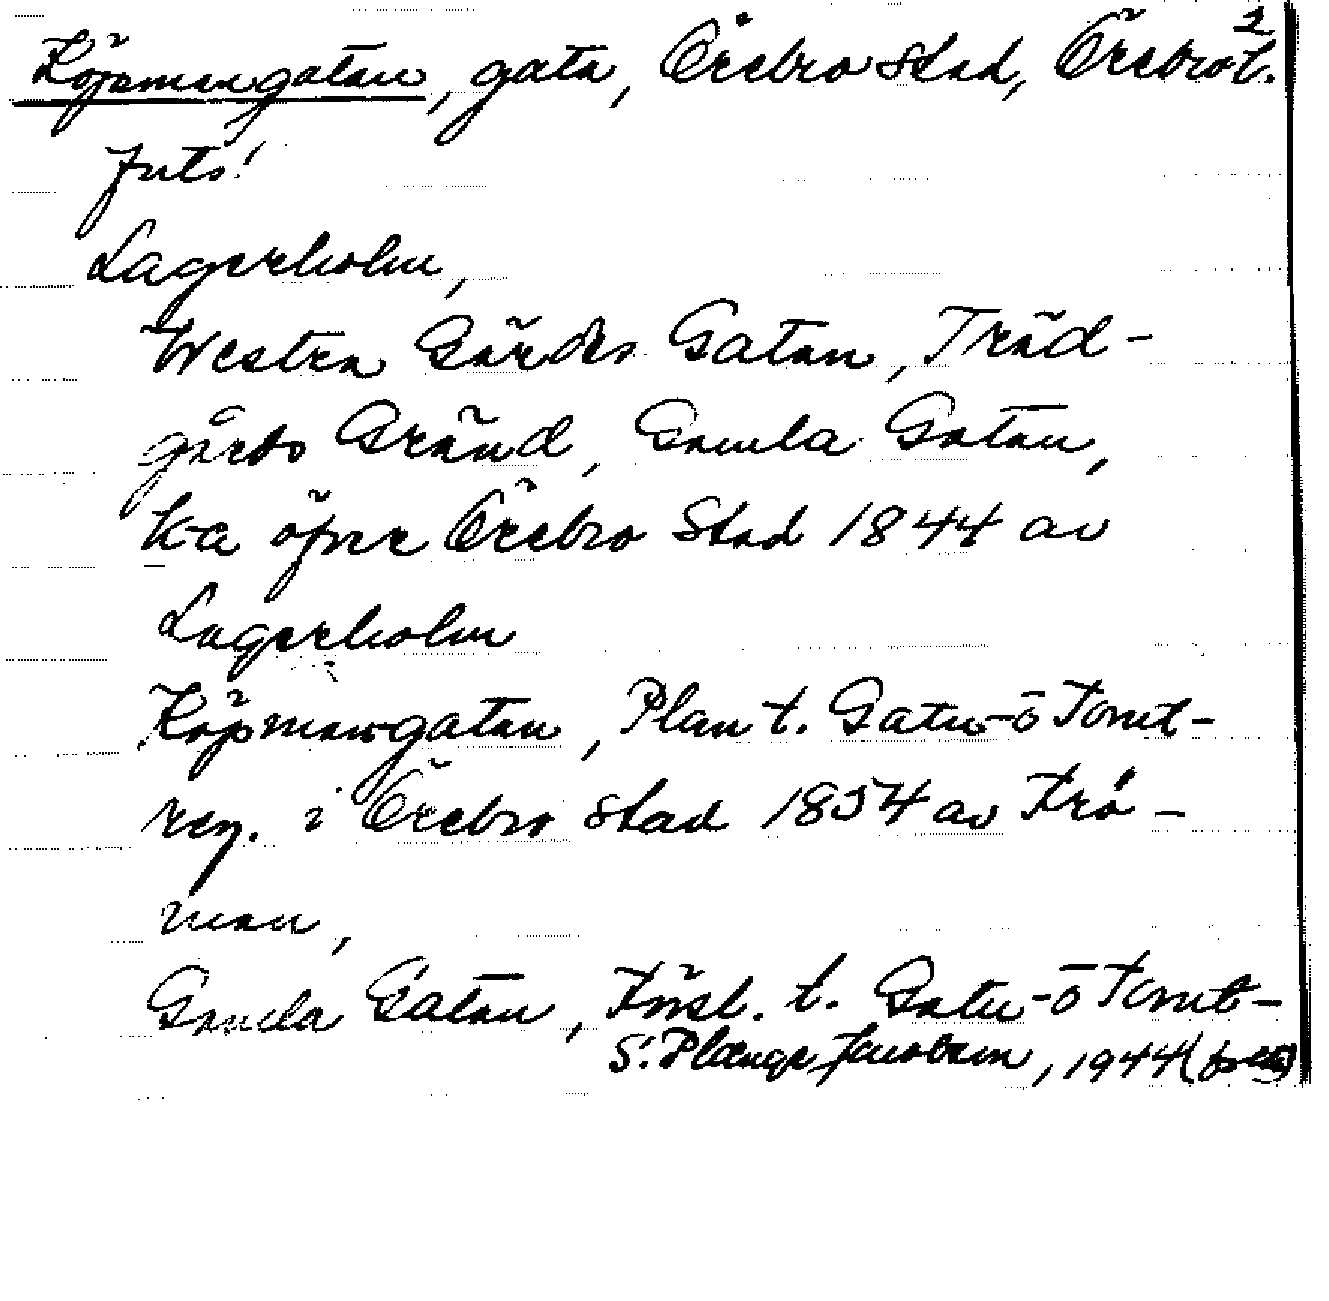 2
Köpmangatan, gata, Örebro stad, Örebro l.
forts!
Lagerholm,
Westra Gärdes Gatan, Träd-
gårds Gränd, Gamla Gatan,
K-a öfver Örebro Stad 1844 av
Lagerholm
Köpmangatan, Plan t. Gatu- o Tomt-
reg. i Örebro stad 1854 av Kró-
man,
Gamla Gatan, Försl. t. Gatu- o Tomt-
S. Plænge Jacobson, 1944